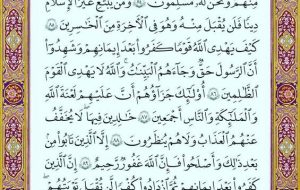 مِنْهُمْ وَنَحْنُ لَهُۥ مُسْلِمُونَ ۝ وَمَن يَبْتَغِ غَيْرَ ٱلْإِسْلَٰمِ
دِينًا فَلَن يُقْبَلَ مِنْهُ وَهُوَ فِى ٱلْءَاخِرَةِ مِنَ ٱلْخَٰسِرِينَ ۝
كَيْفَ يَهْدِى ٱللَّهُ قَوْمًا كَفَرُوا۟ بَعْدَ إِيمَٰنِهِمْ وَشَهِدُوٓا۟
أَنَّ ٱلرَّسُولَ حَقٌّ وَجَآءَهُمُ ٱلْبَيِّنَٰتُ ۚ وَٱللَّهُ لَا يَهْدِى ٱلْقَوْمَ
ٱلظَّٰلِمِينَ ۝ أُو۟لَٰٓئِكَ جَزَآؤُهُمْ أَنَّ عَلَيْهِمْ لَعْنَةَ ٱللَّهِ
وَٱلْمَلَٰٓئِكَةِ وَٱلنَّاسِ أَجْمَعِينَ ۝ خَٰلِدِينَ فِيهَا لَا يُخَفَّفُ
عَنْهُمُ ٱلْعَذَابُ وَلَا هُمْ يُنظَرُونَ ۝ إِلَّا ٱلَّذِينَ تَابُوا۟ مِنۢ
بَعْدِ ذَٰلِكَ وَأَصْلَحُوا۟ فَإِنَّ ٱللَّهَ غَفُورٌ رَّحِيمٌ ۝ إِنَّ ٱلَّذِينَ
كَفَرُوا۟ بَعْدَ إِيمَٰنِهِمْ ثُمَّ ٱزْدَادُوا۟ كُفْرًا لَّن تُقْبَلَ تَوْبَتُهُمْ